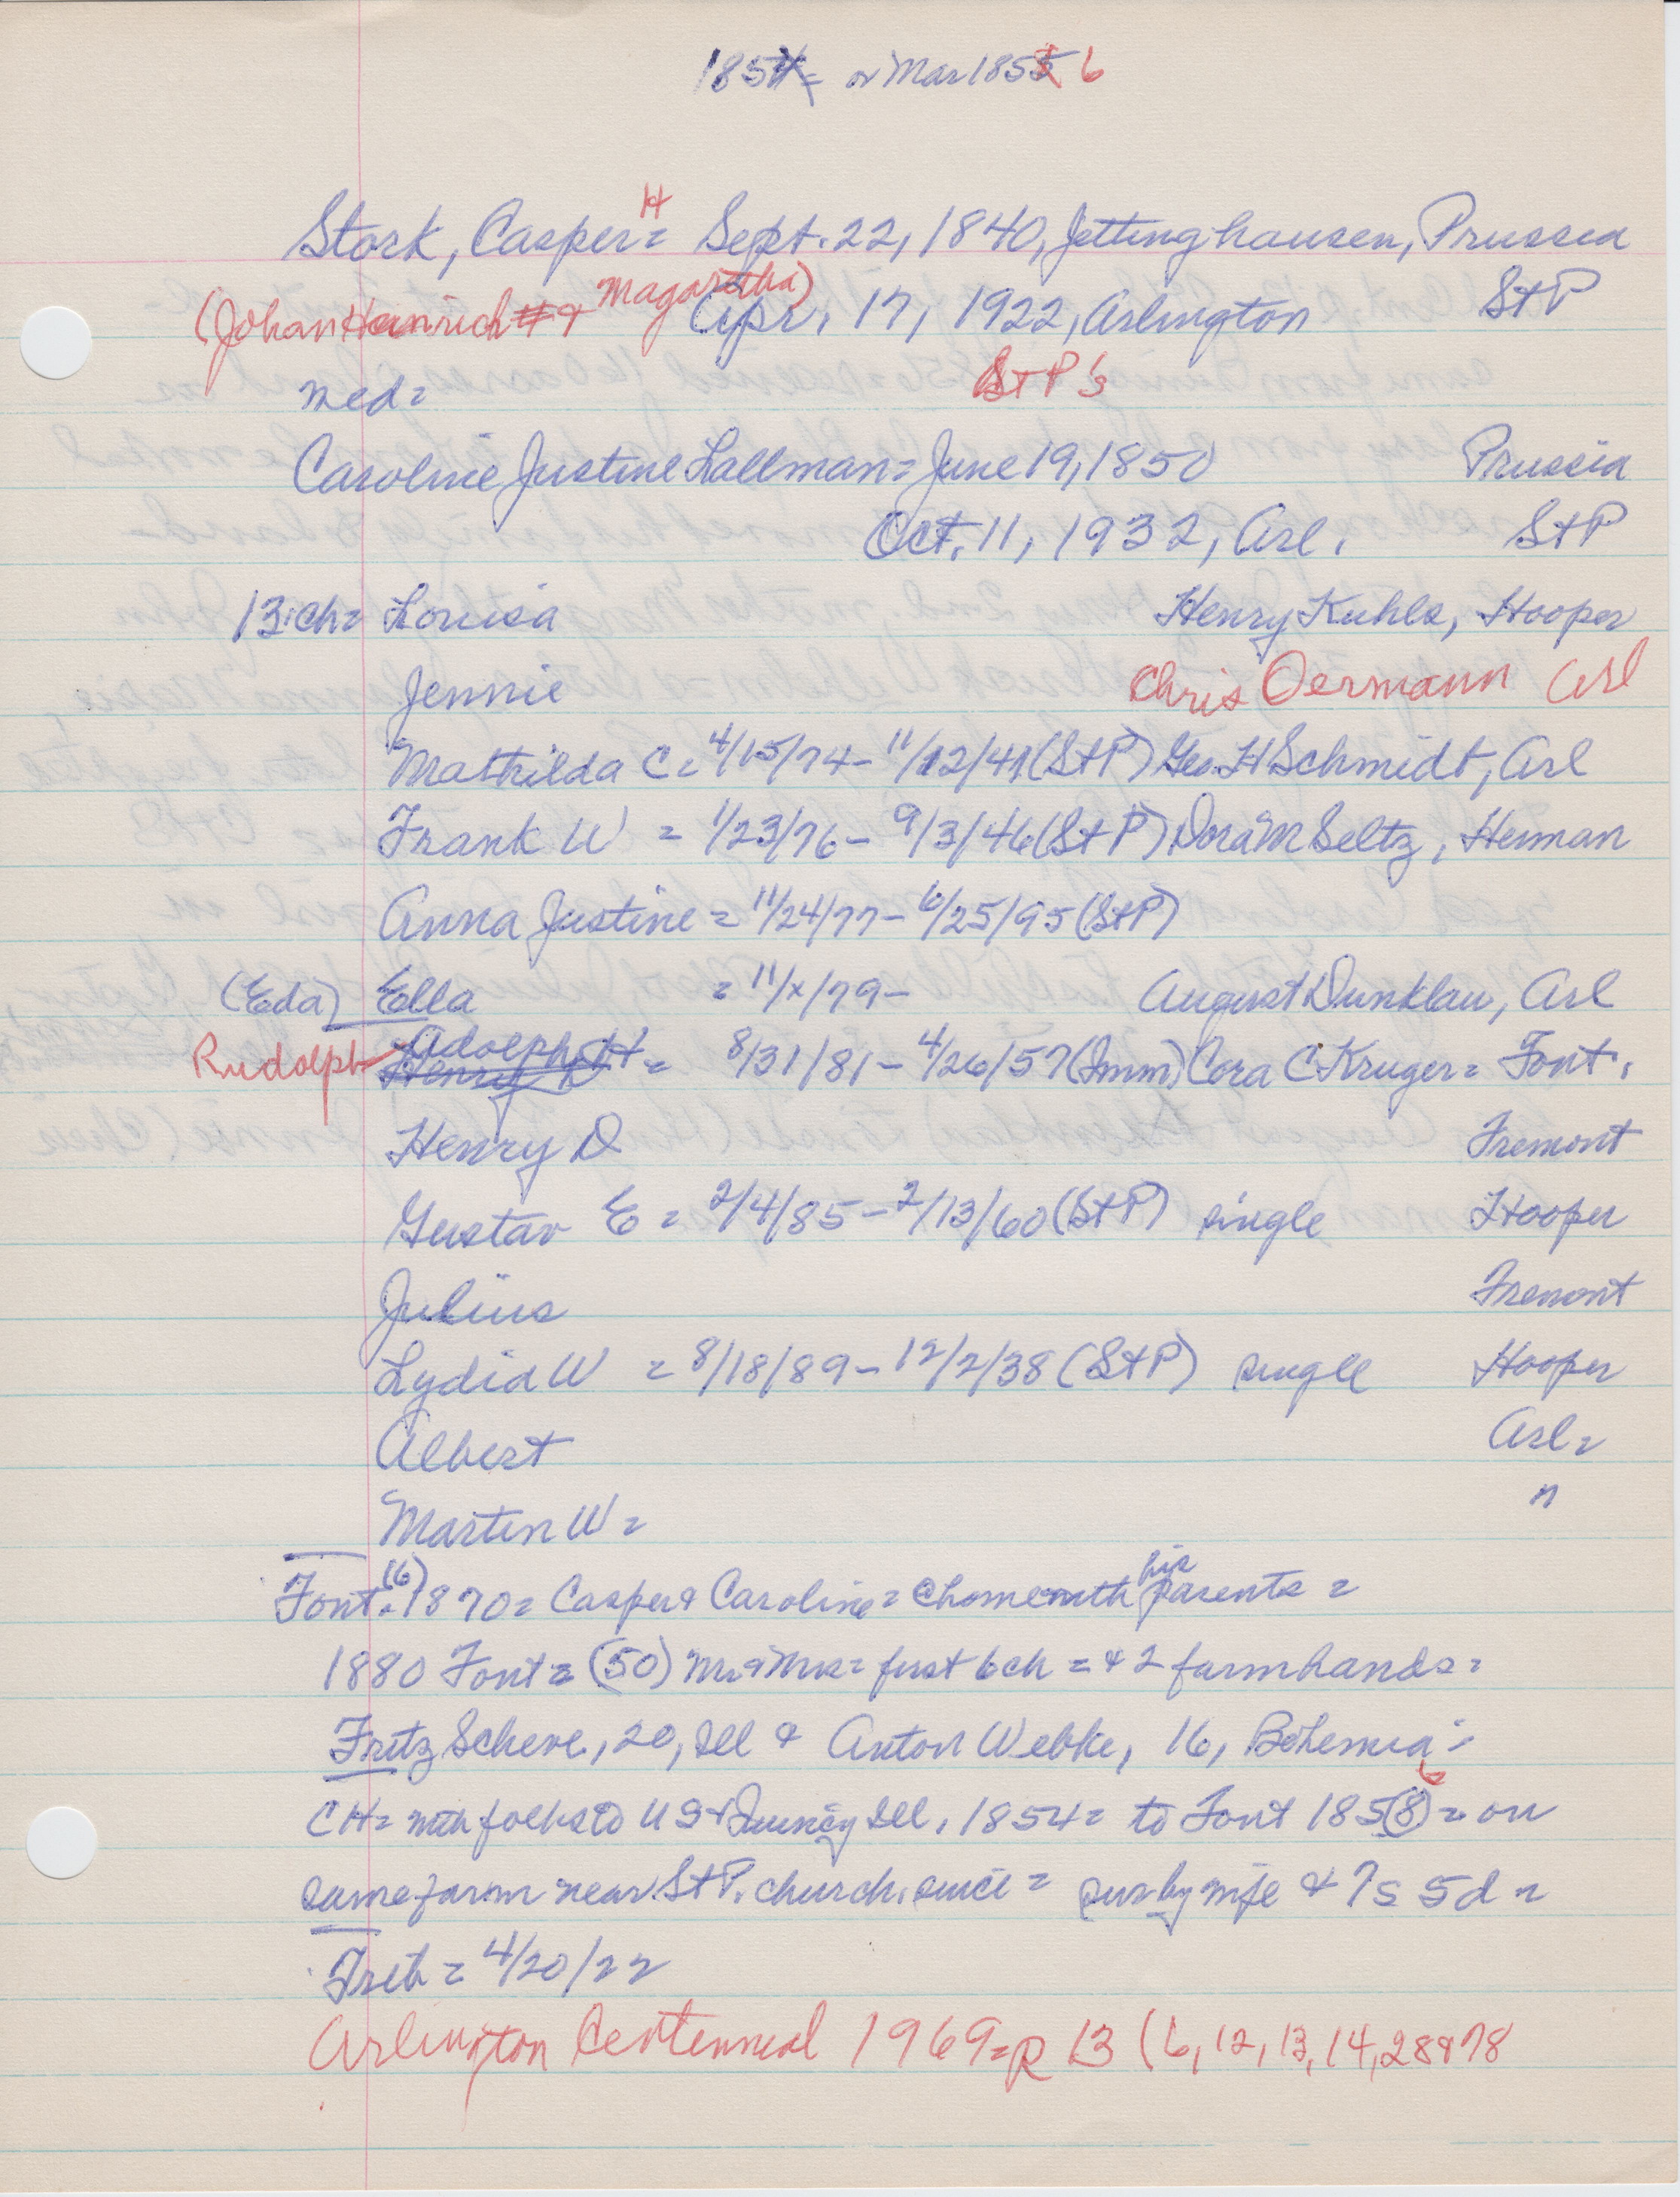 1854 = or Mar 1855 6
Stork, Casper H = Sept. 22, 1840, Jettinghausen, Prussia
(Johan Heinrich & Magaretha) Apr. 17, 1922, Arlington StP
med = StP's
Caroline Justine Lallman = June 19, 1850 Prussia
Oct. 11, 1932, Arl. StP
13 ch = Louisa Henry Kuhls, Hooper
Jennie Chris Oermann Arl
Mathilda C = 4/15/74 - 11/12/41 (StP) Geo. H Schmidt, Arl
Frank W = 1/23/76 - 9/3/46 (StP) Dora M Seltz, Herman
Anna Justine = 11/24/77 - 6/25/95 (StP)
(Eda) Ella = 11/x/79 - August Dunklau, Arl
Rudolph Adolph H = 8/31/81 - 4/26/57 (Imm) Cora C Kruger = Font.
Henry D
Henry D Fremont
Gustav E = 2/4/85 - 2/13/60 (StP) single Hooper
Julius Fremont
Lydia W = 8/18/89 - 12/2/38 (StP) single Hooper
Albert Arl =
Martin W = "
Font. (6) 1870 = Casper & Caroline = @ home with his parents =
1880 Font = (50) Mr & Mrs = first 6 ch = & 2 farmhands =
Fritz Scheve, 20, Ill & Anton Webke, 16, Bohemia =
CH = with folks to US & Quincy Ill, 1854 = to Font 185(8) 6 = on
same farm near St P. church since = sur by wife & 7s 5d =
Trib = 4/20/22
Arlington Centennial 1969 = p 13 (6, 12, 13, 14, 28 & 78